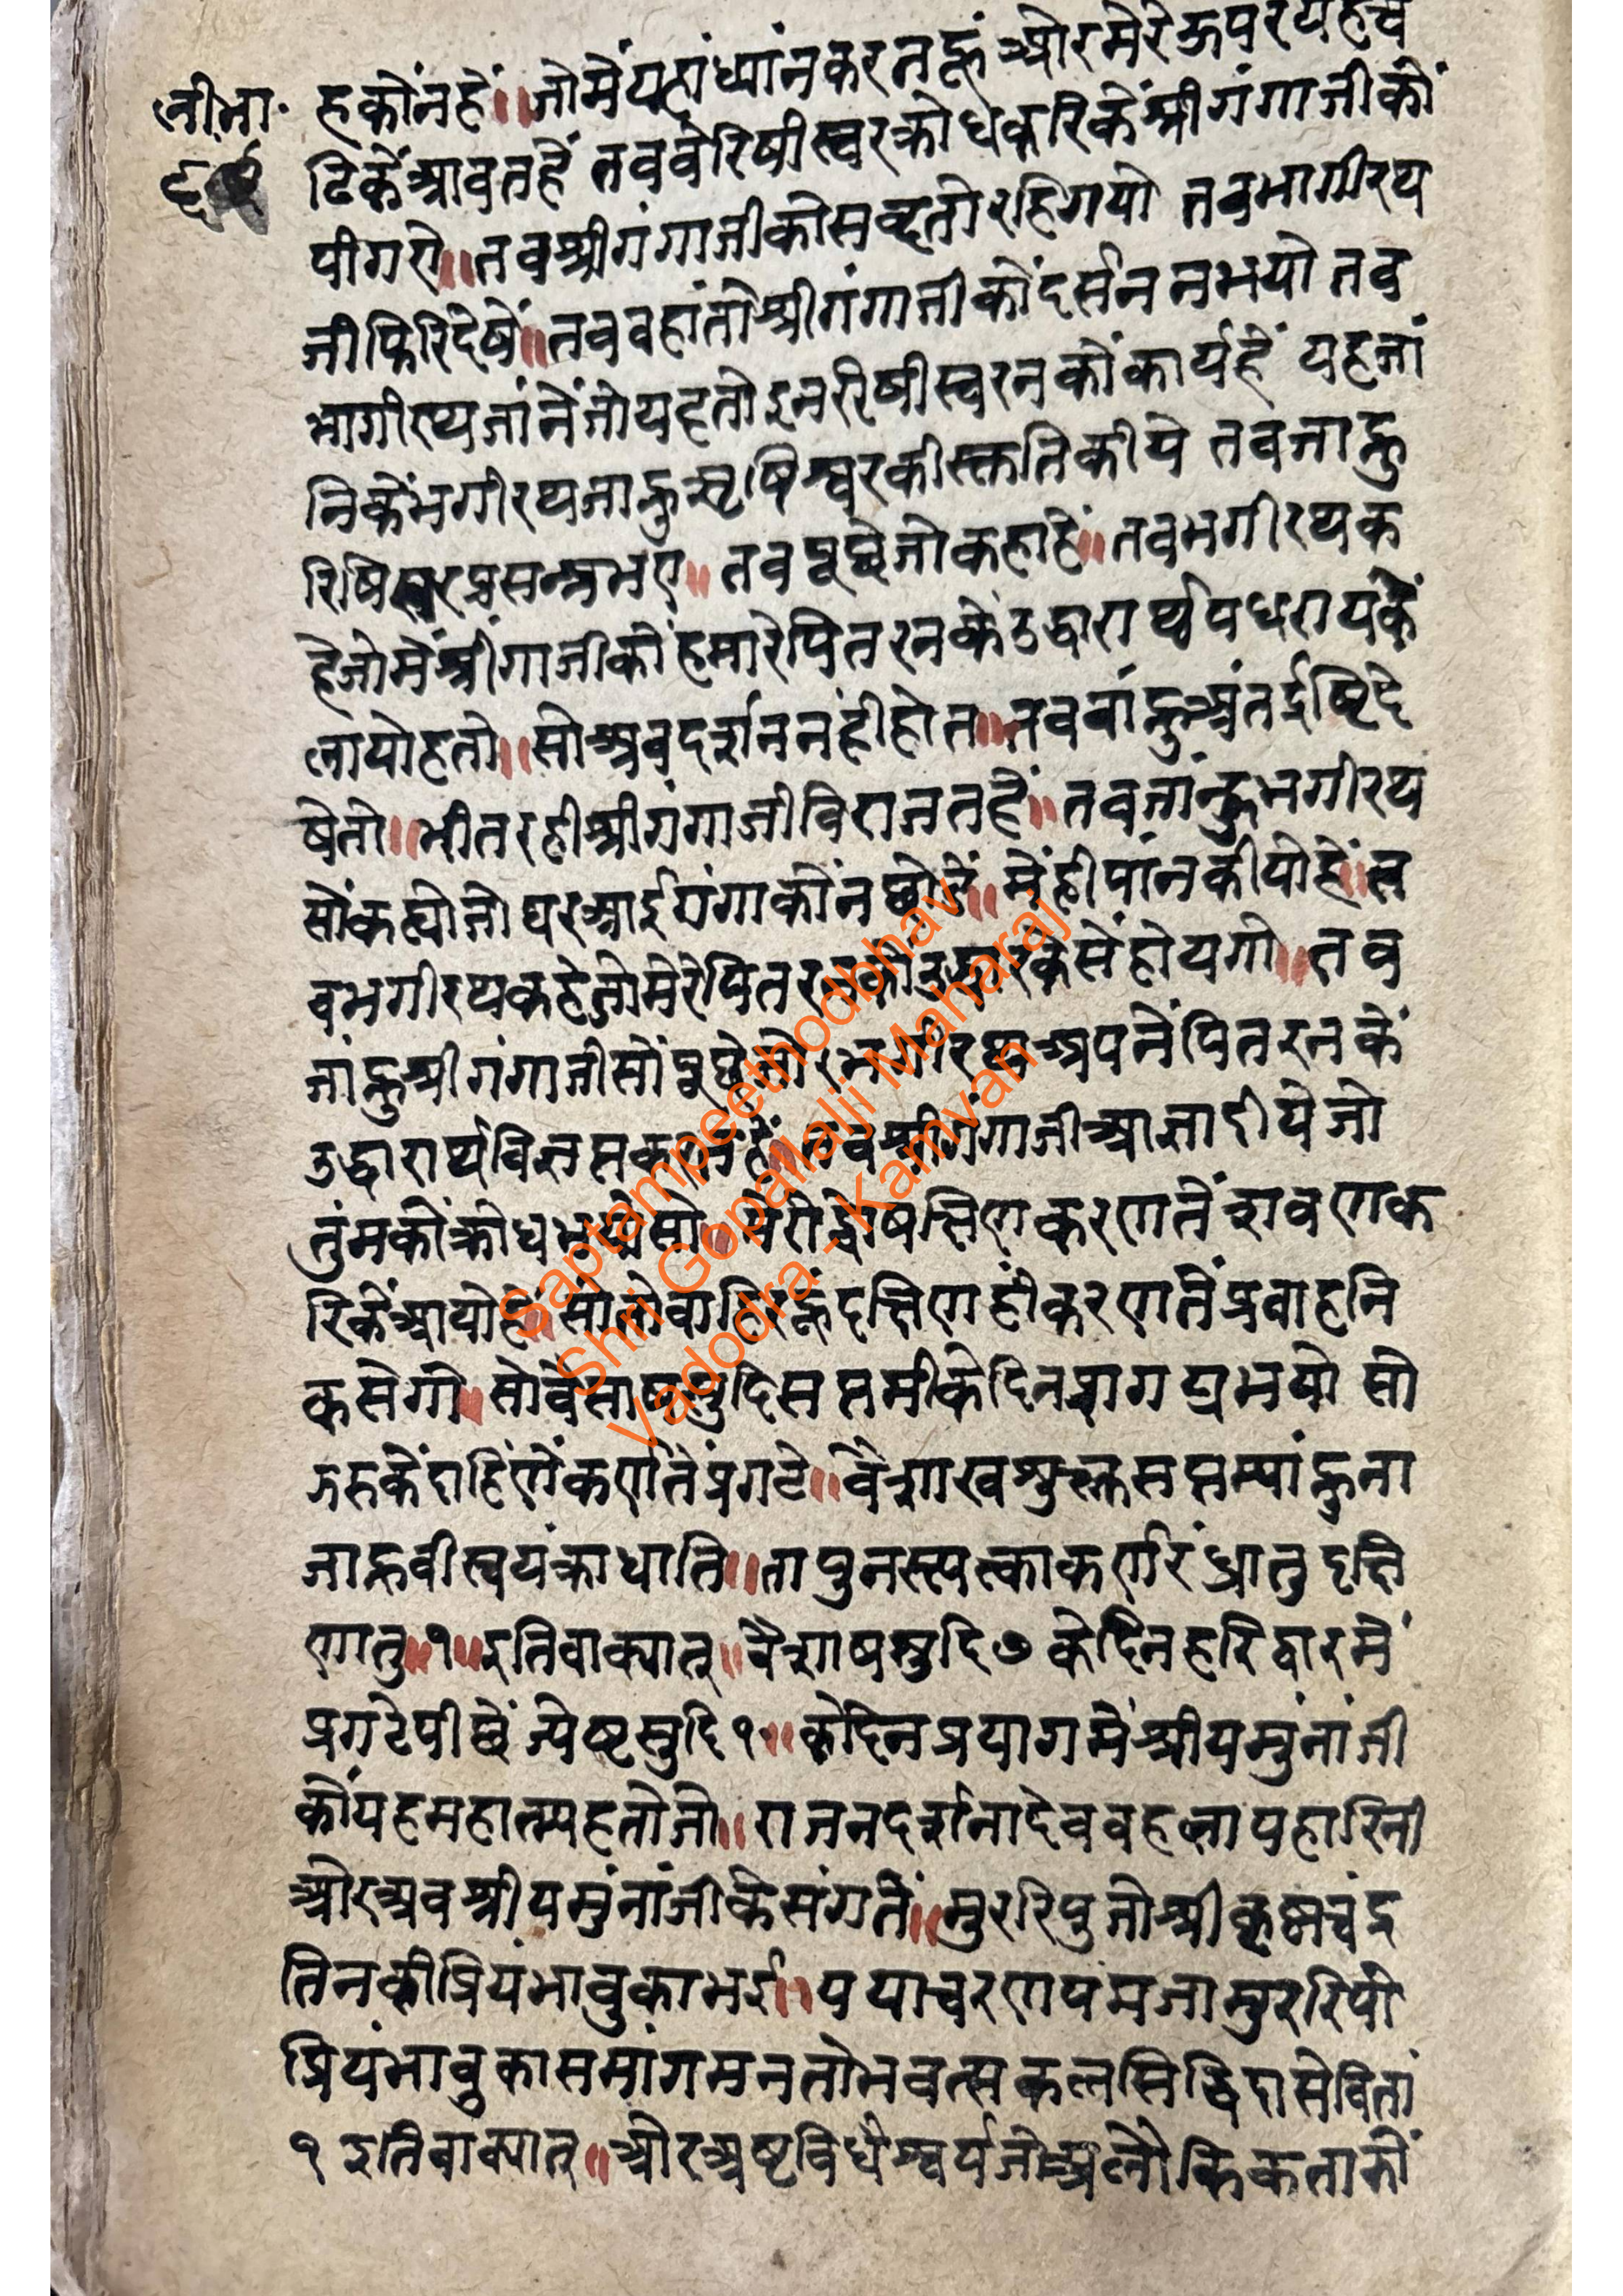 ली.भा.
६९
हकोंनहें॥जोमेंयहांध्यांनकरतहूं ओरमेरेऊपरयहच
ढिकेंआवतहें तबवेरिषीस्वरक्रोधकरिकेंश्रीगंगाजीकों
पीगऐ॥तबश्रीगंगाजीकोसब्दतोरहिगयो तबभागीरथ
जीफिरिदेषें॥तबवहांतोश्रीगंगाजीकोंदर्सननभयो तब
भागीरथजांनेंजोयहतोइनरिषीस्वरनकोंकार्यहें यहजां
निकेंभगीरथजाह्नुऋषिश्वरकीस्तुतिकीये तबजाह्नु
रिषिस्वरप्रसन्नभए॥ तबपूछेजोकहाहें॥तबभगीरथक
हेजोमेंश्रीगंगाजीकोंहमारेपितरनकेउद्धारार्थपधरायकें
लायोहतो॥सोअबदर्शननहींहोत॥तबजांह्नुअंतर्द्दष्टिदे
षेतो॥भीतरहीश्रीगंगाजीविराजतहें॥तबजांन्हुभगीरथ
सोंकह्योजोघरआईगंगाकोंनछोडें॥मेंहीपांनकीयोहें॥त
बभगीरथकहेजोमेरेपितरनकोउद्धारकेसेंहोयगो॥तब
जांह्नुश्रीगंगाजीसोंपूछेजो॥भगीरथअपनेंपितरनकें
उद्धारार्थविज्ञप्तकरतहें॥तबश्रीगंगाजीआज्ञादीयेजो
तुंमकोंक्रोधभयोसो॥मेरोद्वेषदक्षिणकरणतेंश्रवणक
रिकेंआयोहें॥सोतोबाहिरहूंदक्षिणहींकरणतेंप्रवाहनि
कसेगो॥सोवेसाषसुदिसप्तमीकेदिनप्रागट्यभयो सो
ऊरुकेंदाहिंणेंकर्णतेंप्रगटे॥वैशाखशुक्लसप्तम्यांह्नुना
जाह्नवीस्वयंक्रोधात्ति॥तापुनस्त्यक्ताकर्णरंध्रातुदक्षि
णातु॥१॥इतिवाक्यात्॥वैशाषसुदि७केदिनहरिद्वारमें
प्रगटेपीछेंज्येष्टसुदि१॰॥केदिनप्रयागमेंश्रीयमुंनांजी
कोंयहमहात्म्यहतोजो॥राजनदर्शनादेवब्रह्महत्यापहारिनी
ओरअबश्रीयमुंनांजीकेसंगतें॥मुररिपुजोश्रीकृष्णचंद्र
तिनकीप्रियंभावुकाभई॥ययाचरणपंमजामुररिपो
प्रियंभावुकासमांगमनतोभवत्सकलसिद्धिदासेवितां
१ इतिवाक्यात्॥ओरअष्टविधैश्वर्यजोअलौकिकताकों